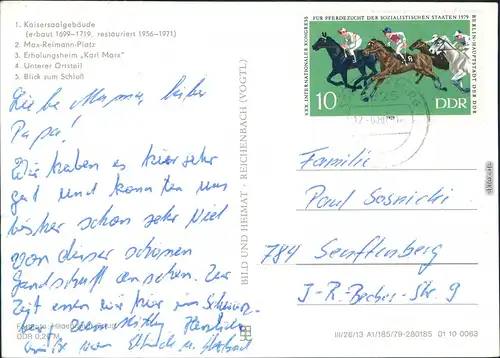 1. Kaisersaalgebäude
(erbaut 1699–1719, restauriert 1956–1971)
2. Max-Reimann-Platz
3. Erholungsheim „Karl Marx“
4. Unterer Ortsteil
5. Blick zum Schloß
Liebe Mama, lieber
Papa!
Wir haben es hier sehr
gut und konnten uns
bisher schon sehr viel
von dieser schönen
Landschaft ansehen. Zur
Zeit essen wir hier im
Mittag Herzliche
DDR 0,20
BILD UND HEIMAT · REICHENBACH (VOGTL)
XXX. INTERNATIONALER KONGRESS
FÜR PFERDEZUCHT DER SOZIALISTISCHEN STAATEN 1979
BERLIN · HAUPTSTADT DER DDR
10
DDR
Familie
Paul Sosnicki
784 Senftenberg
J.-R.-Becher-Str. 9
III/26/13 A1/185/79-280185 01 10 0063